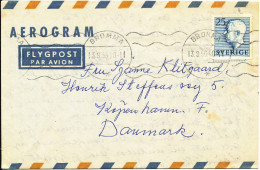 AEROGRAM
FLYGPOST
PAR AVION
BROMMA
25
SVERIGE
Fru Susanne Klitgaard
Henrik Steffens vej 5
København F.
Danmark